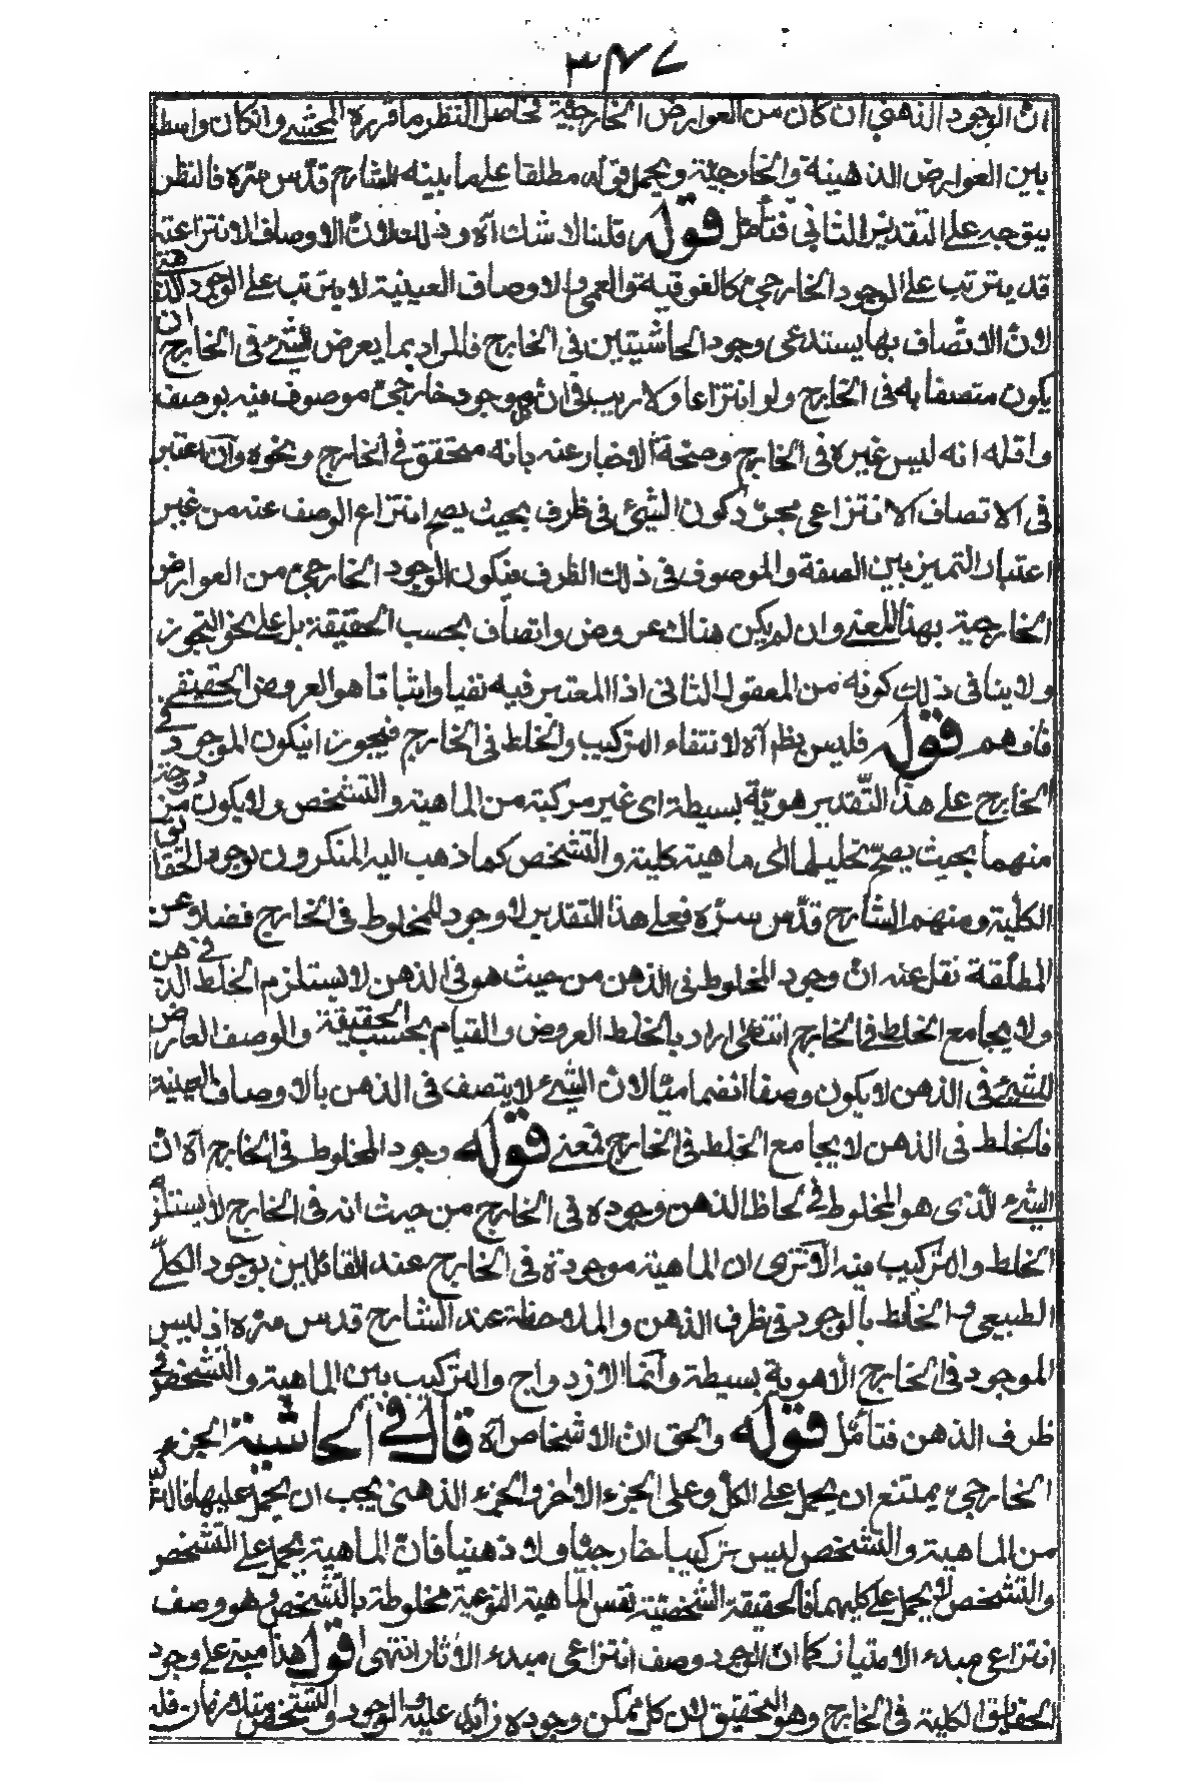 ٣٨٧
ان الوجود الذهني ان كان من العوارض الخارجية محاصل النظر ما قرره المحشي وان كان واسط
بين العوارض الذهنية والخارجية ويحمل قوله مطلقا على ما بينه الشارح قدس سره فالنظر
يتوجه على التقدير الثاني فتأمل قوله قلنا لا شك آه وذلك لان الاوصاف الانتزاعية
قد يترتب على الوجود الخارجي كالفوقية والعمى والاوصاف العينية لا يترتب على الوجود الذهني
لان الاتصاف بها يستدعى وجود الحاشيتين في الخارج فالمراد بما يعرض للشيء في الخارج ان
يكون متصفا به في الخارج ولو انتزاعا ولا ريب في ان موجود خارجي موصوف فيه بوصف
واقله انه ليس غيره في الخارج وصحة الاخبار عنه بانه متحقق في الخارج ونحوه وان اعتبر
في الاتصاف الانتزاعي مجرد كون الشيء في ظرف بحيث يصح انتزاع الوصف عنه من غير
اعتبار التميز بين الصفة والموصوف في ذلك الظرف فيكون الوجود الخارجي من العوارض
الخارجية بهذا المعنى وان لم يكن هناك عروض واتصاف بحسب الحقيقة بل على نحو التجوز
ولا ينافي ذلك كونه من المعقول الثاني اذا المعتبر فيه نفيا واثباتا هو العروض الحقيقي
فافهم قوله فليس يظم آه لانتفاء التركيب والخلط في الخارج فيجوز ان يكون الموجود في
الخارج على هذا التقدير هوية بسيطة اى غير مركبة من الماهية والتشخص ولا يكون من
منهما بحيث يصح تحليلها الى ماهية كلية والتشخص كما ذهب اليه المنكرون لوجود الحقائق
الكلية ومنهم الشارح قدس سره فعلى هذا التقدير لا وجود للمخلوط في الخارج فضلا عن
المطلقة نقل عنه ان وجود المخلوط في الذهن من حيث هو في الذهن لا يستلزم الخلط الذهني
ولا يجامع الخلط في الخارج انتهى اراد بالخلط العروض والقيام بحسب الحقيقة والوصف العارض
للشيء في الذهن لا يكون وصفا انضماميا لان الشيء لا يتصف في الذهن بالاوصاف العينية
فالخلط في الذهن لا يجامع الخلط في الخارج فمعنى قوله وجود المخلوط في الخارج آه ان
الشيء الذي هو المخلوط في لحاظ الذهن وجوده في الخارج من حيث انه في الخارج لا يستلزم
الخلط والتركيب فيه الا ترى ان الماهية موجودة في الخارج عند القائلين بوجود الكلي
الطبيعي الخلط بالوجود في ظرف الذهن والملاحظة عند الشارح قدس سره اذ ليس
الموجود في الخارج الا هوية بسيطة وانما الازدواج والتركيب بين الماهية والتشخص في
ظرف الذهن فتأمل قوله والحق ان الاشخاص آه قال في الحاشية الجزء
الخارجي يمتنع ان يحمل على الكل وعلى الجزء الآخر والجزء الذهني يجب ان يحمل عليها
من الماهية والتشخص ليس تركيبا خارجيا ولا ذهنيا فان الماهية يحمل على التشخص
والتشخص لا يحمل على كليهما فالحقيقة الشخصية نفس الماهية النوعية مخلوطة بالتشخص وهو وصف
انتزاعي مبدء الامتياز كما ان الوجود وصف انتزاعي مبدء الآثار انتهى قوله هذا مبني على وجود
الحقايق الكلية في الخارج وهو التحقيق لان كل ممكن وجوده زائد عليه والوجود والتشخص متلازمان